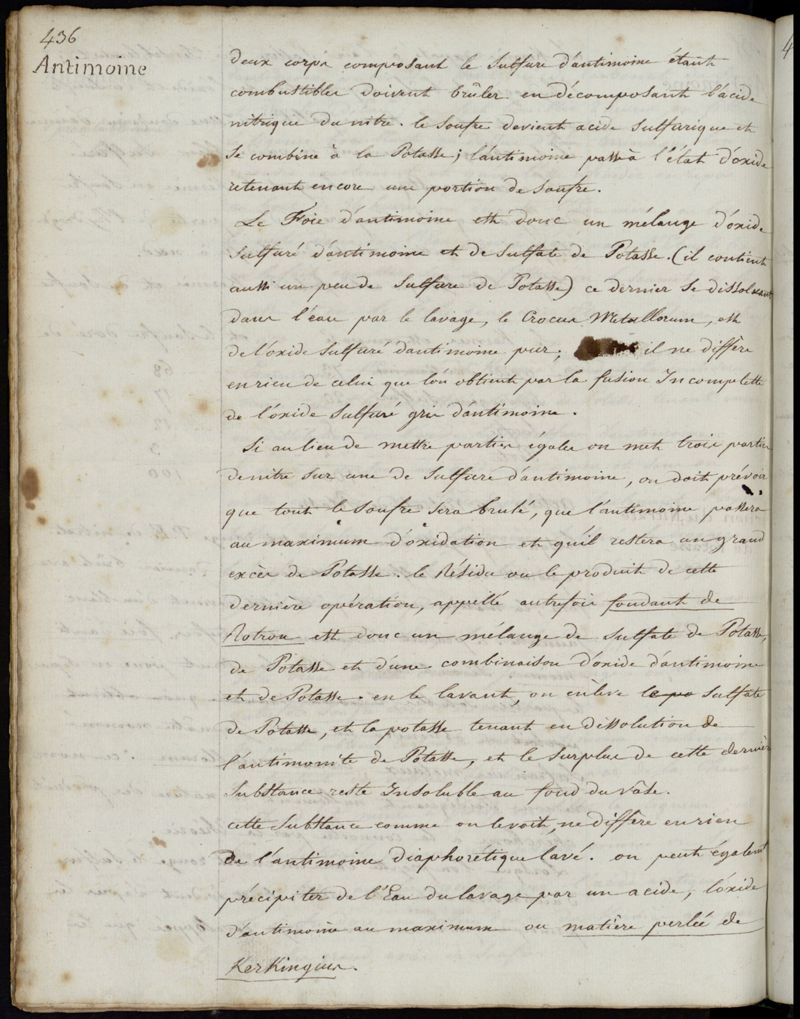 436
Antimoine
deux corps composant le Sulfure d'antimoine étant
combustibles doivent brûler en décomposant l'acide
nitrique du nitre. le Soufre devient acide Sulfurique et
se combine à la Potasse; l'antimoine passe à l'état d'oxide
retenant encore une portion de Soufre.
Le Foie d'antimoine est donc un mélange d'oxide
Sulfuré d'antimoine et de Sulfate de Potasse. (il contient
aussi un peu de Sulfure de Potasse) ce dernier se dissolvant
dans l'eau par le lavage, le Crocus Metallorum, est
de l'oxide Sulfuré d'antimoine pur; il ne diffère
en rien de celui que l'on obtient par la fusion Incomplette
de l'oxide Sulfuré gris d'antimoine.
Si au lieu de mettre parties égales on met trois parties
de nitre sur une de Sulfure d'antimoine, on doit prévoir
que tout le Soufre sera brulé, que l'antimoine passera
au maximum d'oxidation et qu'il restera un grand
excès de Potasse. le Résidu ou le produit de cette
dernière opération, appellé autrefois fondant de
Rotrou est donc un mélange de Sulfate de Potasse,
de Potasse et d'une combinaison d'oxide d'antimoine
et de Potasse. en le lavant, on enlève le po Sulfate
de Potasse, et la potasse tenant en dissolution de
l'antimonite de Potasse, et le Surplus de cette dernière
Substance reste Insoluble au fond du vâse.
cette Substance comme on le voit, ne diffère en rien
de l'antimoine diaphorétique lavé. on peut également
précipiter de l'Eau du lavage par un acide, l'oxide
d'antimoine au maximum ou matière perlée de
KerKingius.